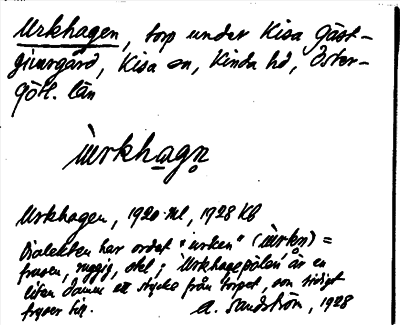 Urkhagen, torp under Kisa Gäst-
givargård, Kisa sn, Kinda hd, Öster-
götl. län
ùrkhagn
Urkhagen, 1920 ml, 1928 KB
Dialekten har ordet "urken" (ùrkn) =
frusen, ruggig, ; Urkhagepölen är en
liten damm ett stycke från torpet, som tidigt
fryser
A. Sandström, 1928